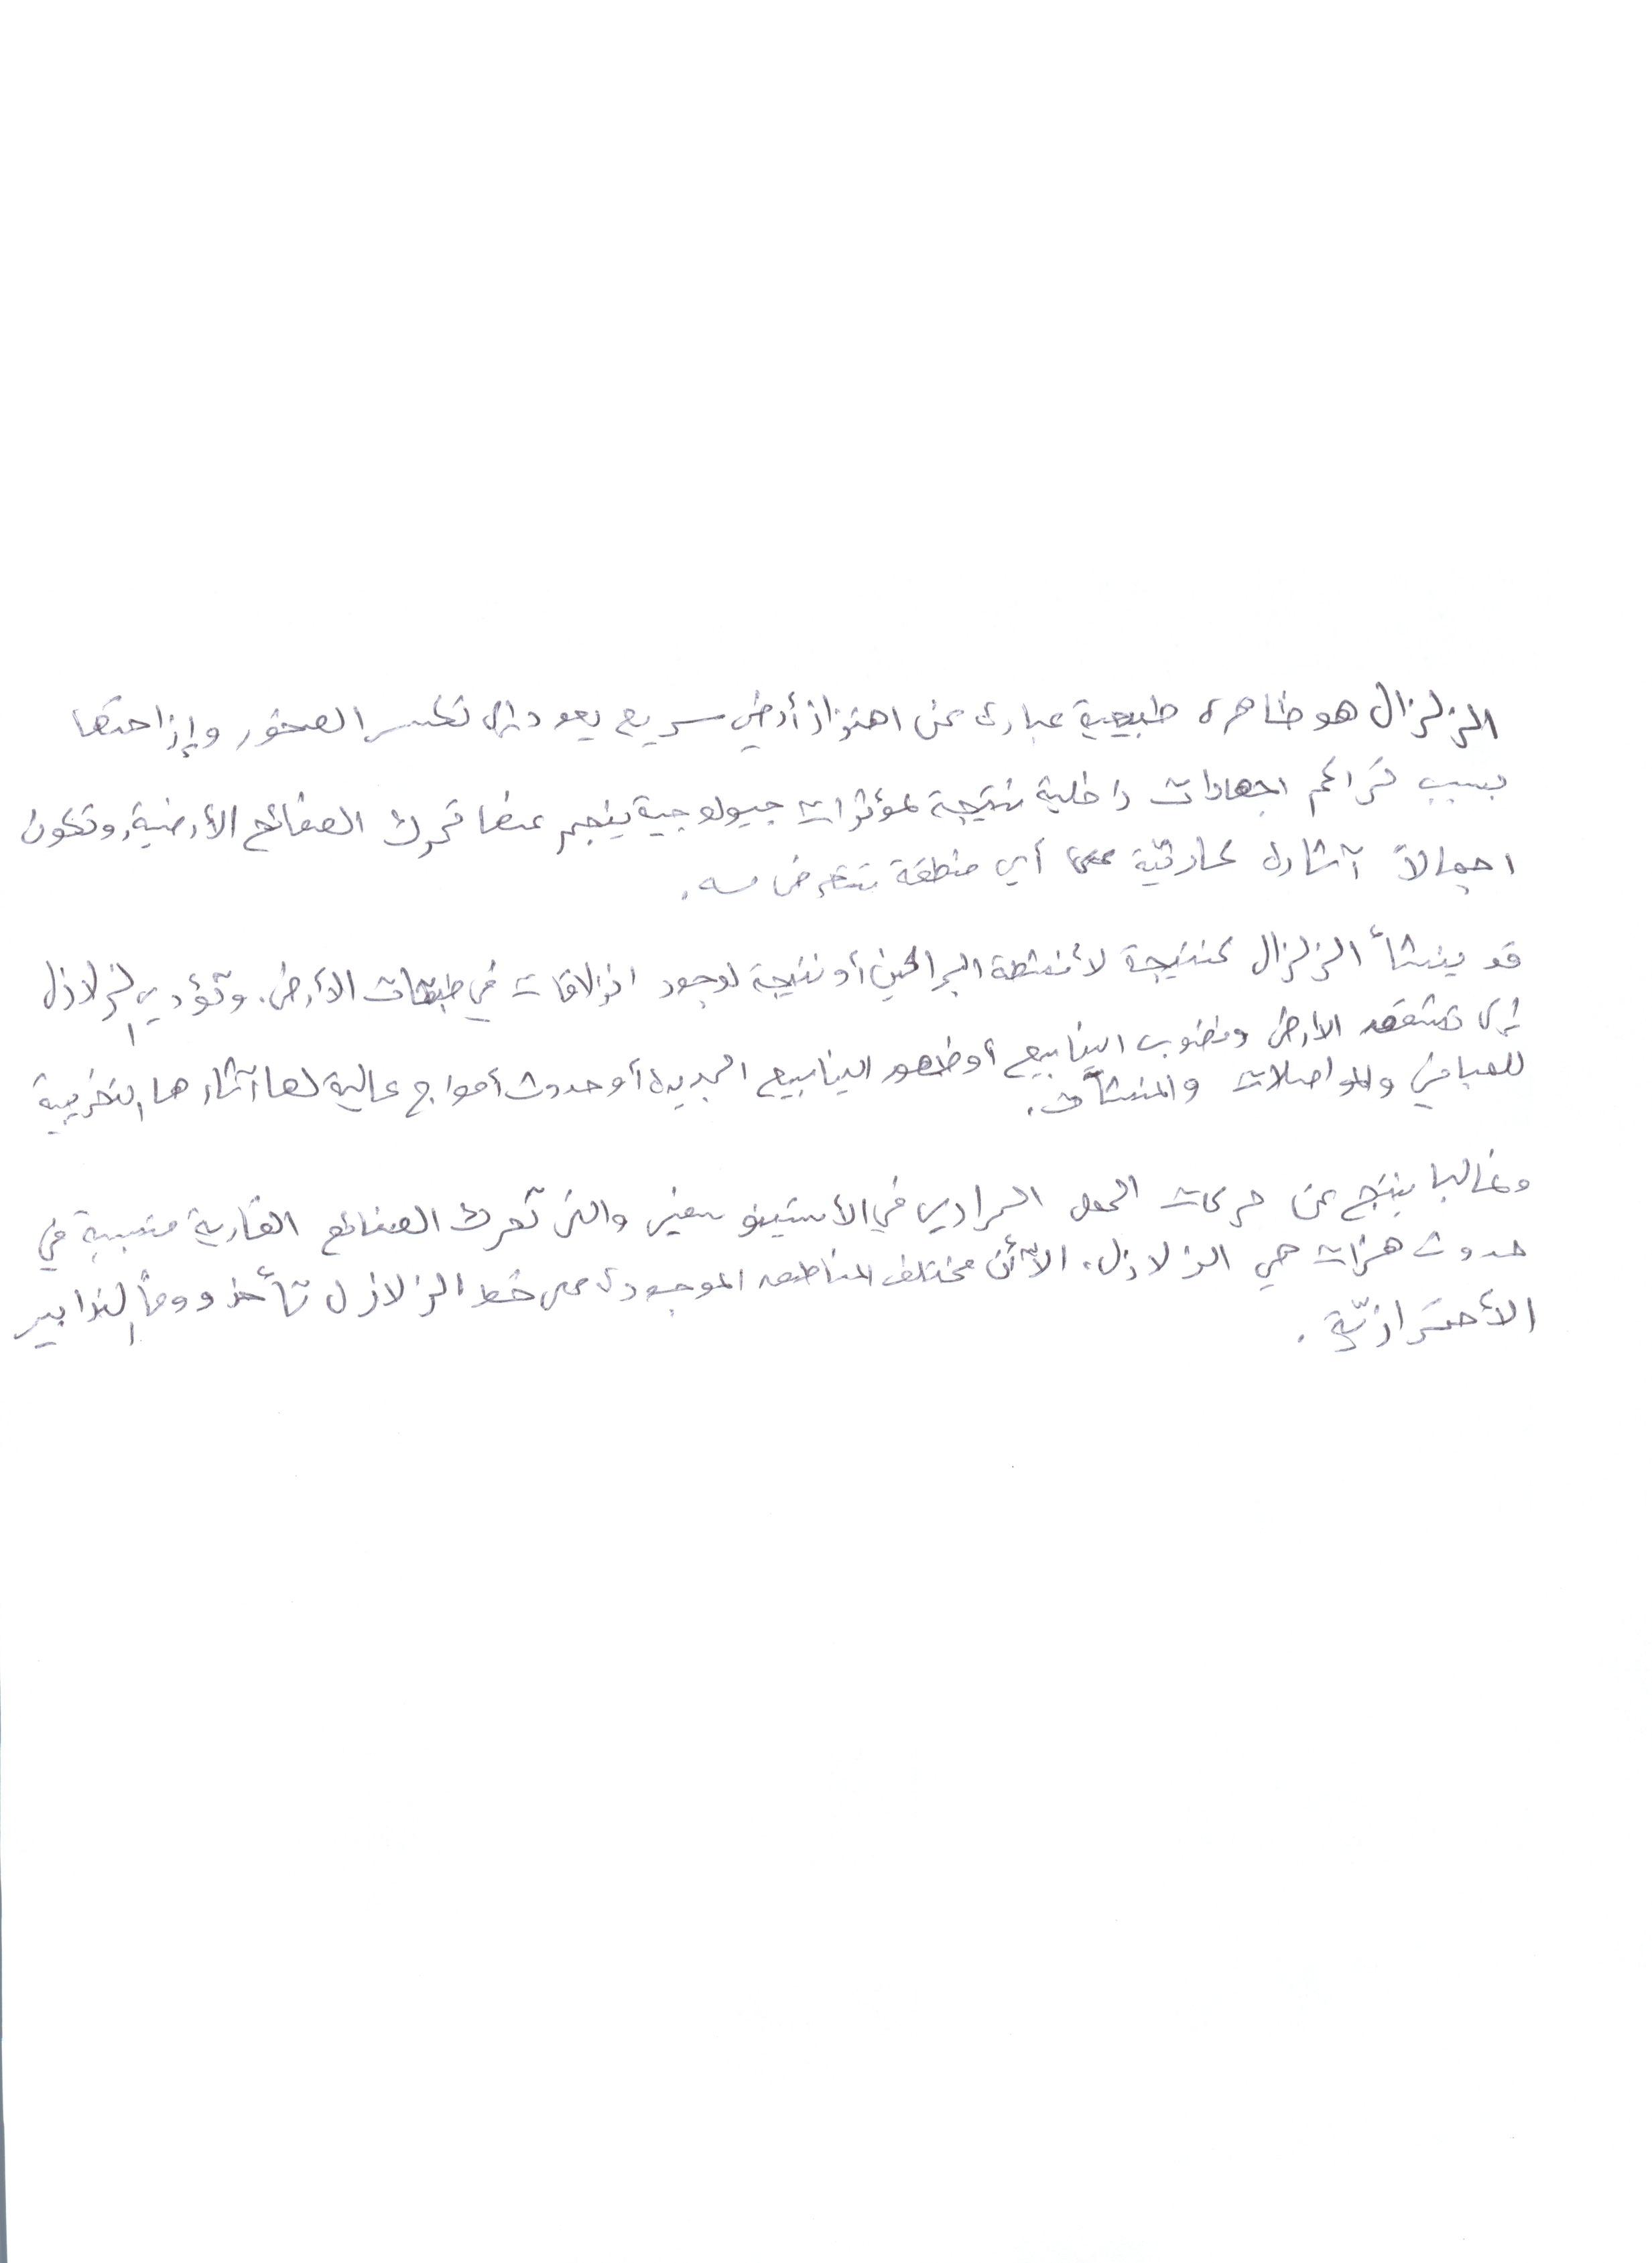 الزلزال هو ظاهرة طبيعية عبارة عن اهتزاز أرضي سريع يعود إلى تكسر الصخور وإزاحتها
بسبب تراكم اجهادات داخلية نتيجة لمؤثرات جيولوجية ينجم عنها تحرك الصفائح الأرضية، وتكون
اجمالاً آثاره كارثيّة على أي منطقة تتعرض له.
قد ينشأ الزلزال كنتيجة لأنشطة البراكين أو نتيجة لوجود انزلاقات في طبقات الأرض. وتؤدي الزلازل
إلى تشقق الارض ونضوب الينابيع أو ظهور الينابيع الجديدة أو حدوث أمواج عالية لها آثارها التخريبية
للمباني والمواصلات والمنشآت.
وغالبا ينتج عن حركات الحمل الحراري في الأستينوسفير والتي تحرك الصفائح القارية متسببة في
حدوث هزات هي الزلازل. الاّ أن مختلف المناطق الموجودة على خط الزلازل تأخذ دوماً التدابير
الأحترازيّة.